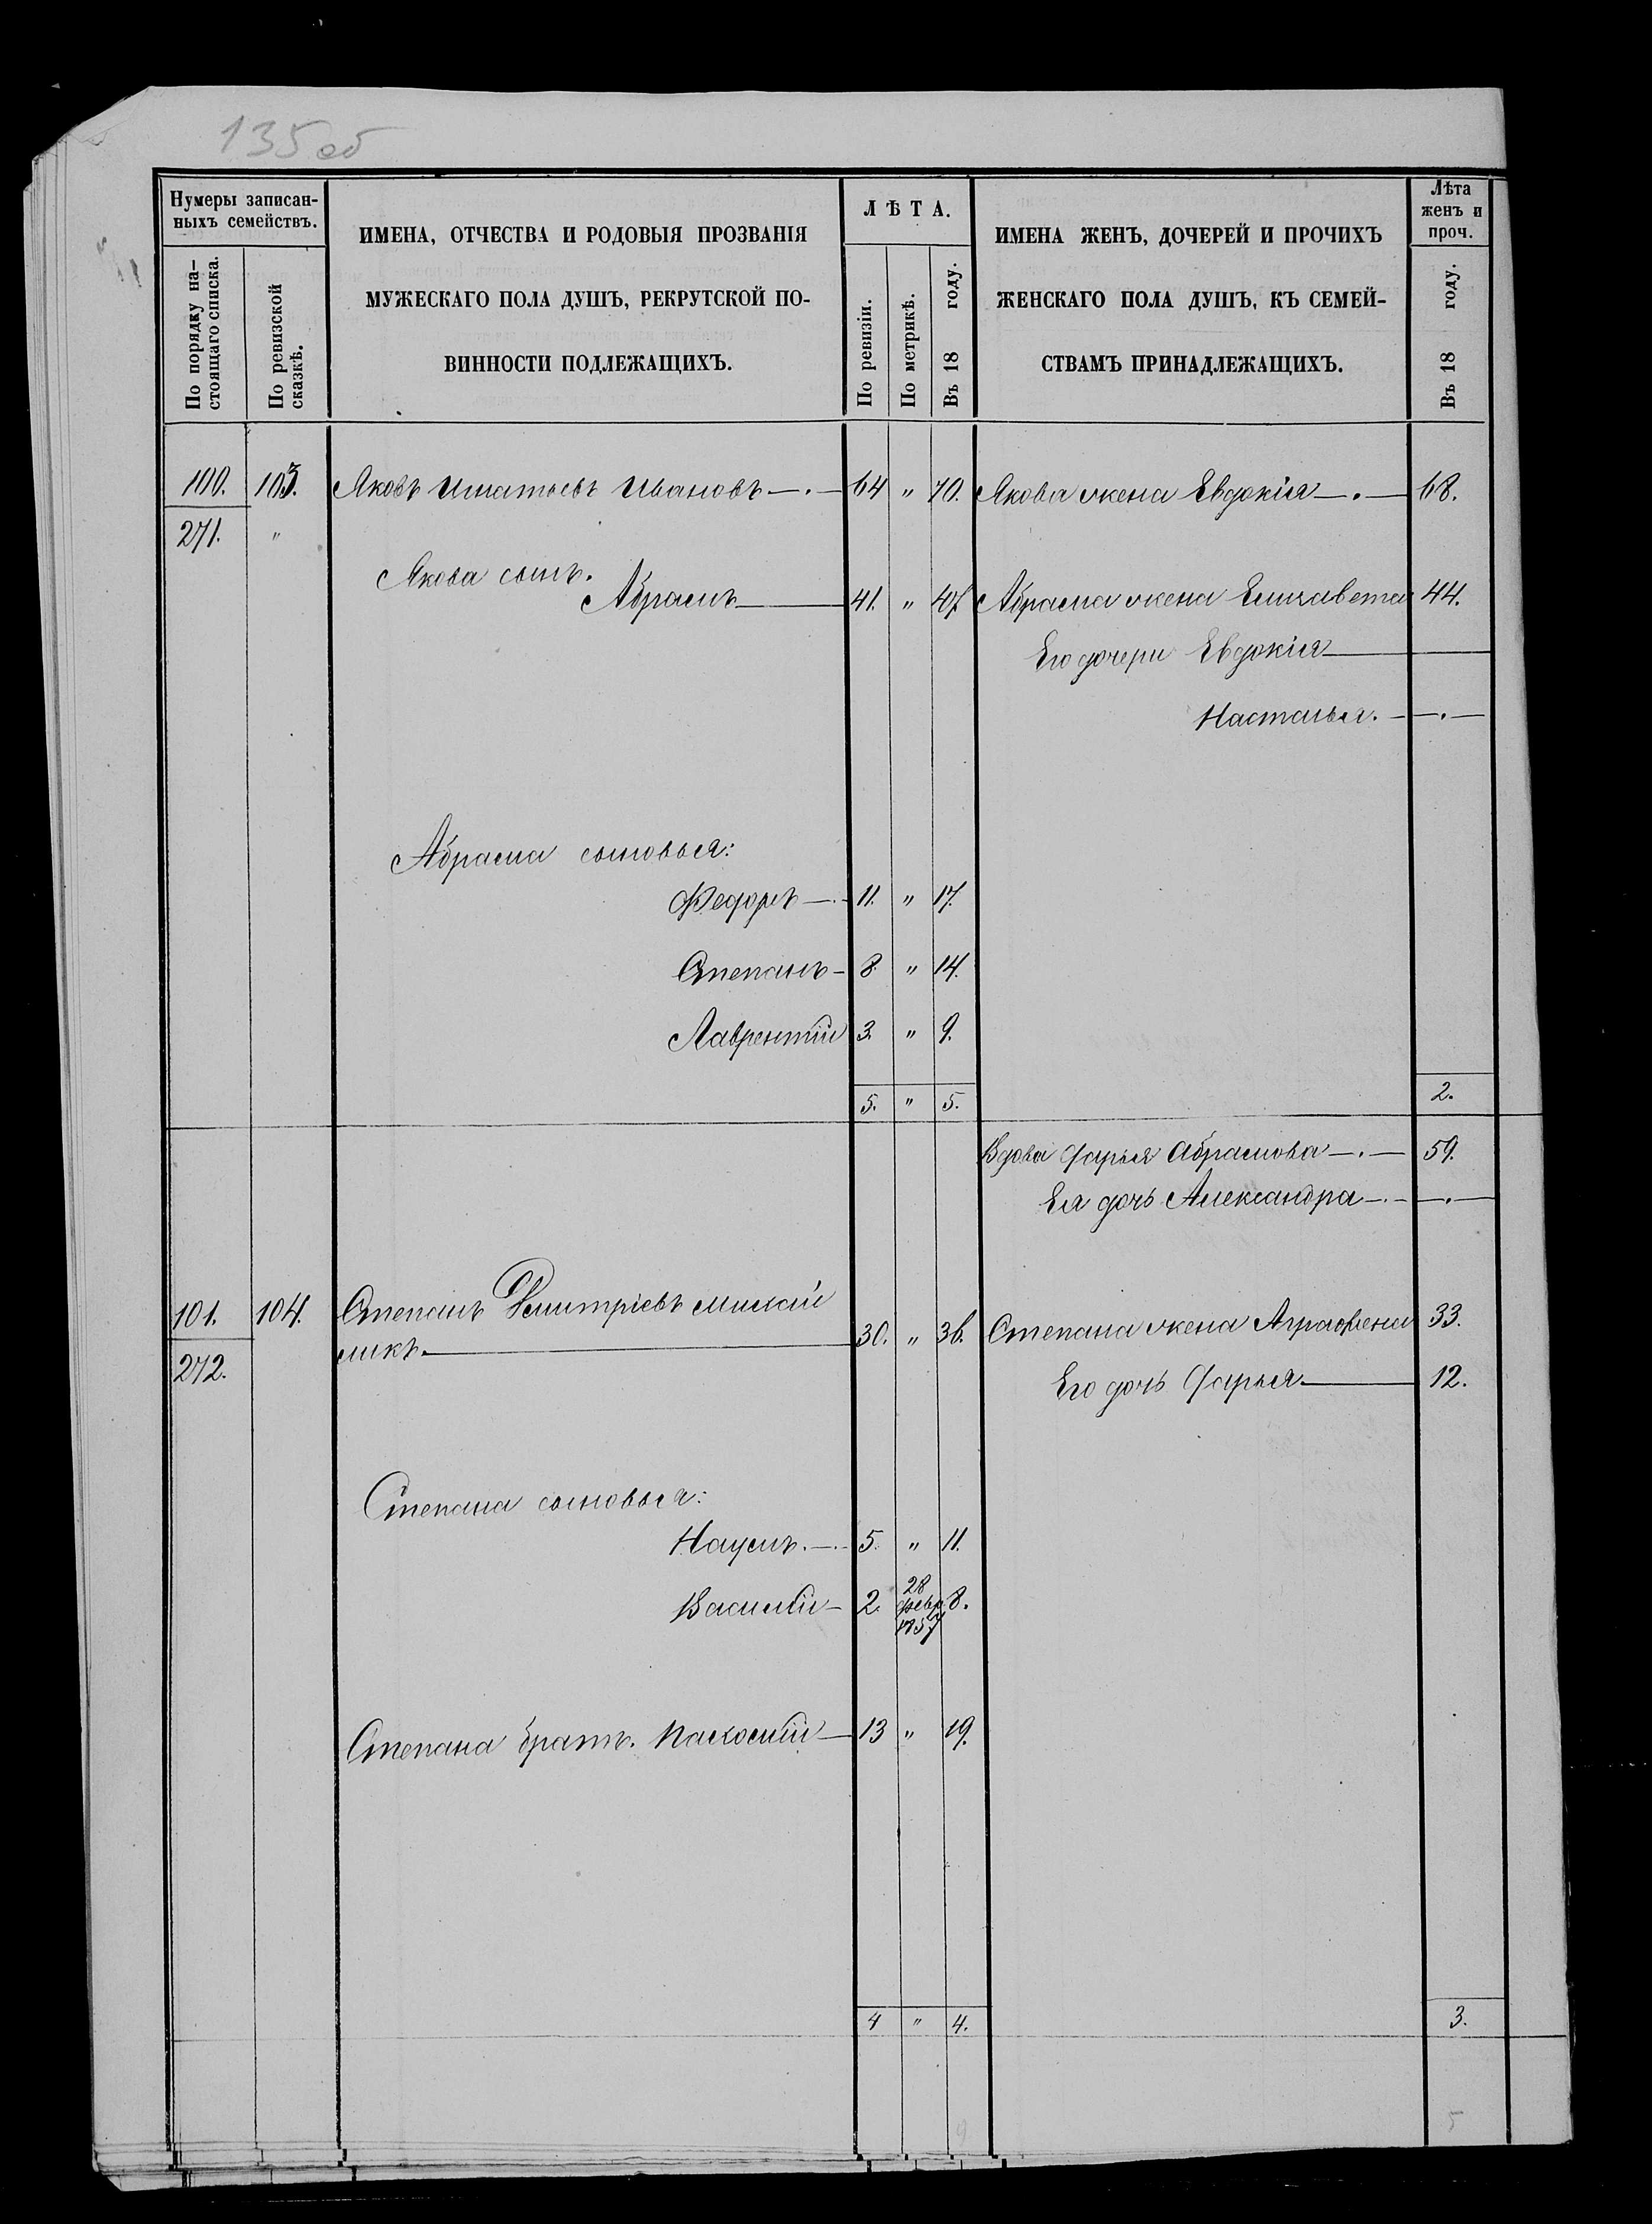 135 об
Нумеры записан-
ныхъ семействъ.
По порядку на-
стоящаго списка.
По ревизской
сказкѣ.
ИМЕНА, ОТЧЕСТВА И РОДОВЫЯ ПРОЗВАНІЯ
МУЖЕСКАГО ПОЛА ДУШЪ, РЕКРУТСКОЙ ПО-
ВИННОСТИ ПОДЛЕЖАЩИХЪ.
ЛѢТА.
По ревизіи.
По метрикѣ.
Въ 18 году.
ИМЕНА ЖЕНЪ, ДОЧЕРЕЙ И ПРОЧИХЪ
ЖЕНСКАГО ПОЛА ДУШЪ, КЪ СЕМЕЙ-
СТВАМЪ ПРИНАДЛЕЖАЩИХЪ.
Лѣта
женъ и
проч.
Въ 18 году.
100. 103. Яковъ Игнатьевъ Ивановъ 64 " 70. Якова жена Евдокія 68.
271. "
Якова сынъ.
Абрамъ 41. " 47. Абрама жена Елизавета 44.
Его дочери Евдокія
Насталья.
Абрама сыновья:
Федоръ 11. " 17.
Степанъ 8. " 14.
Лаврентій 3. " 9.
5. " 5. 2.
Вдова Дарья Абрамова 59.
Ея дочь Александра
101. 104. Степанъ Дмитріевъ
никъ. 30. " 36. Степана жена Аграфена 33.
272. Его дочь Дарья 12.
Степана сыновья:
Наумъ. 5. " 11.
Василій 2. 28 февр. 1857 8.
Степана братъ. 13 " 19.
4 " 4. 3.
9 5